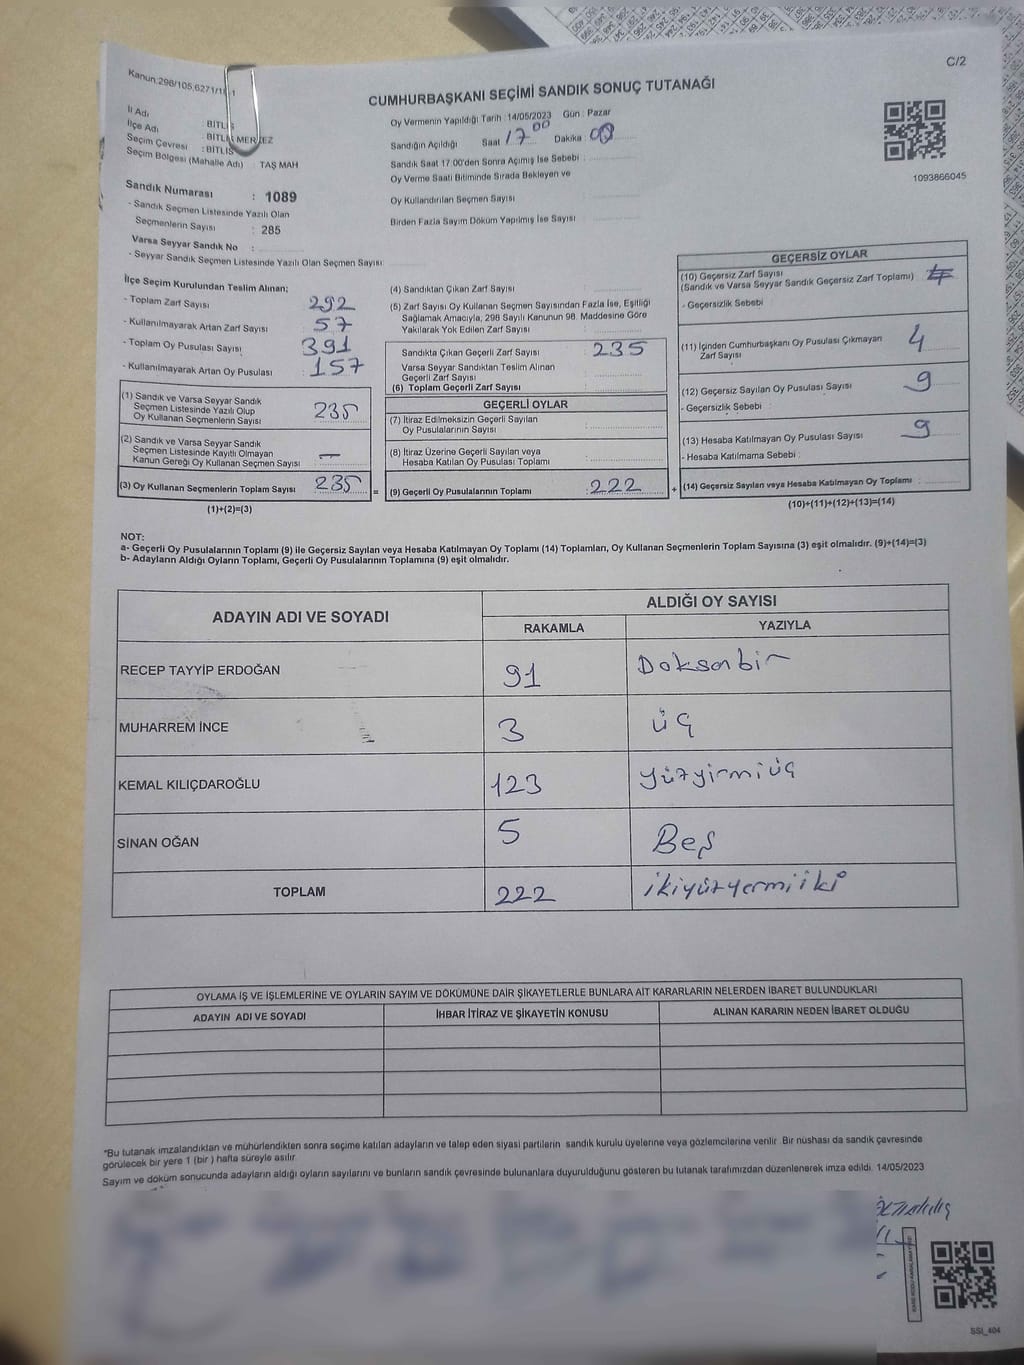 C/2
Kanun:298/105,6271/1
CUMHURBAŞKANI SEÇİMİ SANDIK SONUÇ TUTANAĞI
İl Adı : BİTLİS
İlçe Adı : BİTLİS MERKEZ
Seçim Çevresi : BİTLİS
Seçim Bölgesi (Mahalle Adı) : TAŞ MAH
Sandık Numarası : 1089
- Sandık Seçmen Listesinde Yazılı Olan
Seçmenlerin Sayısı : 285
Varsa Seyyar Sandık No :
- Seyyar Sandık Seçmen Listesinde Yazılı Olan Seçmen Sayısı:
Oy Vermenin Yapıldığı Tarih : 14/05/2023 Gün : Pazar
Sandığın Açıldığı Saat 17 00 Dakika
Sandık Saat 17:00'den Sonra Açımış İse Sebebi :
Oy Verme Saati Bitiminde Sırada Bekleyen ve
Oy Kullandırılan Seçmen Sayısı
Birden Fazla Sayım Döküm Yapılmış İse Sayısı
1093866045
İlçe Seçim Kurulundan Teslim Alınan;
- Toplam Zarf Sayısı 292
- Kullanılmayarak Artan Zarf Sayısı : 57
- Toplam Oy Pusulası Sayısı 391
- Kullanılmayarak Artan Oy Pusulası : 157
(1) Sandık ve Varsa Seyyar Sandık
Seçmen Listesinde Yazılı Olup
Oy Kullanan Seçmenlerin Sayısı : 235
(2) Sandık ve Varsa Seyyar Sandık
Seçmen Listesinde Kayıtlı Olmayan
Kanun Gereği Oy Kullanan Seçmen Sayısı : —
(3) Oy Kullanan Seçmenlerin Toplam Sayısı : 235 =
(1)+(2)=(3)
(4) Sandıktan Çıkan Zarf Sayısı :
(5) Zarf Sayısı Oy Kullanan Seçmen Sayısından Fazla İse, Eşitliği
Sağlamak Amacıyla, 298 Sayılı Kanunun 98. Maddesine Göre
Yakılarak Yok Edilen Zarf Sayısı :
Sandıkta Çıkan Geçerli Zarf Sayısı : 235
Varsa Seyyar Sandıktan Teslim Alınan
Geçerli Zarf Sayısı
(6) Toplam Geçerli Zarf Sayısı :
GEÇERLİ OYLAR
(7) İtiraz Edilmeksizin Geçerli Sayılan
Oy Pusulalarının Sayısı :
(8) İtiraz Üzerine Geçerli Sayılan veya
Hesaba Katılan Oy Pusulası Toplamı :
(9) Geçerli Oy Pusulalarının Toplamı : 222 +
GEÇERSİZ OYLAR
(10) Geçersiz Zarf Sayısı
(Sandık ve Varsa Seyyar Sandık Geçersiz Zarf Toplamı) :
- Geçersizlik Sebebi :
(11) İçinden Cumhurbaşkanı Oy Pusulası Çıkmayan
Zarf Sayısı : 4
(12) Geçersiz Sayılan Oy Pusulası Sayısı : 9
- Geçersizlik Sebebi :
(13) Hesaba Katılmayan Oy Pusulası Sayısı : 9
- Hesaba Katılmama Sebebi :
(14) Geçersiz Sayılan veya Hesaba Katılmayan Oy Toplamı :
(10)+(11)+(12)+(13)=(14)
NOT:
a- Geçerli Oy Pusulalarının Toplamı (9) ile Geçersiz Sayılan veya Hesaba Katılmayan Oy Toplamı (14) Toplamları, Oy Kullanan Seçmenlerin Toplam Sayısına (3) eşit olmalıdır. (9)+(14)=(3)
b- Adayların Aldığı Oyların Toplamı, Geçerli Oy Pusulalarının Toplamına (9) eşit olmalıdır.
ADAYIN ADI VE SOYADI ALDIĞI OY SAYISI
RAKAMLA YAZIYLA
RECEP TAYYİP ERDOĞAN 91 Doksanbir
MUHARREM İNCE 3 üç
KEMAL KILIÇDAROĞLU 123 Yüzyirmiüç
SİNAN OĞAN 5 Beş
TOPLAM 222 ikiyüzyermiiki
OYLAMA İŞ VE İŞLEMLERİNE VE OYLARIN SAYIM VE DÖKÜMÜNE DAİR ŞİKAYETLERLE BUNLARA AİT KARARLARIN NELERDEN İBARET BULUNDUKLARI
ADAYIN ADI VE SOYADI İHBAR İTİRAZ VE ŞİKAYETİN KONUSU ALINAN KARARIN NEDEN İBARET OLDUĞU
*Bu tutanak imzalandıktan ve mühürlendikten sonra seçime katılan adayların ve talep eden siyasi partilerin sandık kurulu üyelerine veya gözlemcilerine verilir. Bir nüshası da sandık çevresinde
görülecek bir yere 1 (bir ) hafta süreyle asılır.
Sayım ve döküm sonucunda adayların aldığı oyların sayılarını ve bunların sandık çevresinde bulunanlara duyurulduğunu gösteren bu tutanak tarafımızdan düzenlenerek imza edildi. 14/05/2023
SSI_404